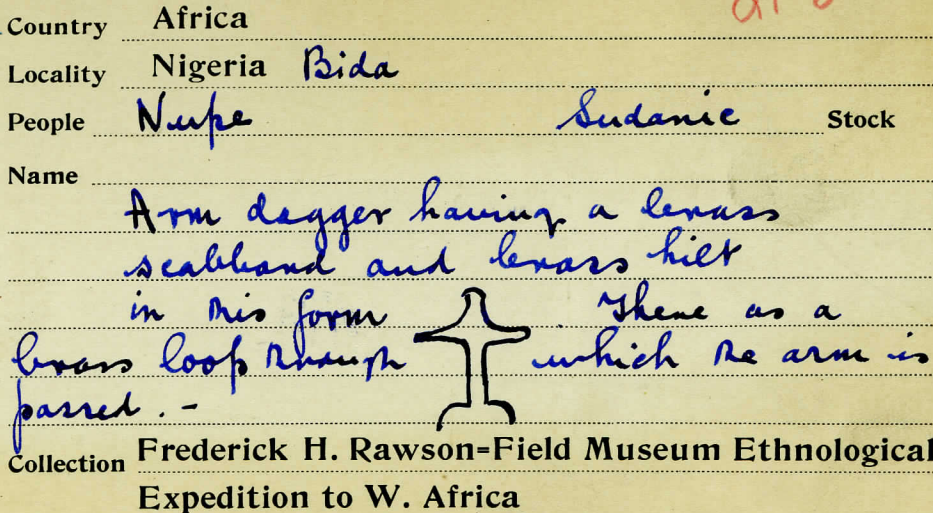 Country Africa
Locality Nigeria Bida
People Nupe Sudanic Stock
Name
Arm dagger having a brass
scabbard and brass hilt
in this form . There is a
brass loop through which the arm is
passed. -
Collection Frederick H. Rawson=Field Museum Ethnological
Expedition to W. Africa